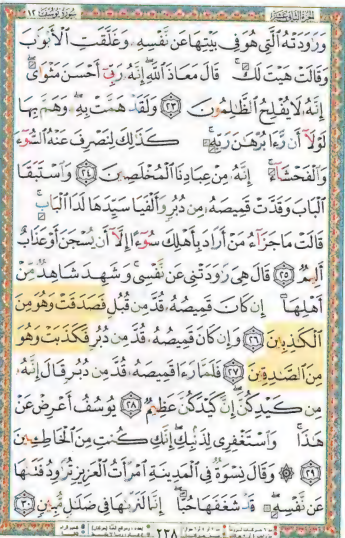 سورة يوسف ١٢
وَرَٰوَدَتْهُ ٱلَّتِى هُوَ فِى بَيْتِهَا عَن نَّفْسِهِۦ وَغَلَّقَتِ ٱلْأَبْوَٰبَ
وَقَالَتْ هَيْتَ لَكَ ۚ قَالَ مَعَاذَ ٱللَّهِ ۖ إِنَّهُۥ رَبِّىٓ أَحْسَنَ مَثْوَاىَ ۖ
إِنَّهُۥ لَا يُفْلِحُ ٱلظَّٰلِمُونَ ٢٣ وَلَقَدْ هَمَّتْ بِهِۦ ۖ وَهَمَّ بِهَا
لَوْلَآ أَن رَّءَا بُرْهَٰنَ رَبِّهِۦ ۚ كَذَٰلِكَ لِنَصْرِفَ عَنْهُ ٱلسُّوٓءَ
وَٱلْفَحْشَآءَ ۚ إِنَّهُۥ مِنْ عِبَادِنَا ٱلْمُخْلَصِينَ ٢٤ وَٱسْتَبَقَا
ٱلْبَابَ وَقَدَّتْ قَمِيصَهُۥ مِن دُبُرٍ وَأَلْفَيَا سَيِّدَهَا لَدَا ٱلْبَابِ ۚ
قَالَتْ مَا جَزَآءُ مَنْ أَرَادَ بِأَهْلِكَ سُوٓءًا إِلَّآ أَن يُسْجَنَ أَوْ عَذَابٌ
أَلِيمٌ ٢٥ قَالَ هِىَ رَٰوَدَتْنِى عَن نَّفْسِى ۚ وَشَهِدَ شَاهِدٌ مِّنْ
أَهْلِهَآ إِن كَانَ قَمِيصُهُۥ قُدَّ مِن قُبُلٍ فَصَدَقَتْ وَهُوَ مِنَ
ٱلْكَٰذِبِينَ ٢٦ وَإِن كَانَ قَمِيصُهُۥ قُدَّ مِن دُبُرٍ فَكَذَبَتْ وَهُوَ
مِنَ ٱلصَّٰدِقِينَ ٢٧ فَلَمَّا رَءَا قَمِيصَهُۥ قُدَّ مِن دُبُرٍ قَالَ إِنَّهُۥ
مِن كَيْدِكُنَّ ۖ إِنَّ كَيْدَكُنَّ عَظِيمٌ ٢٨ يُوسُفُ أَعْرِضْ عَنْ
هَٰذَا ۚ وَٱسْتَغْفِرِى لِذَنۢبِكِ ۖ إِنَّكِ كُنتِ مِنَ ٱلْخَاطِـِٔينَ
٢٩ ۞ وَقَالَ نِسْوَةٌ فِى ٱلْمَدِينَةِ ٱمْرَأَتُ ٱلْعَزِيزِ تُرَٰوِدُ فَتَىٰهَا
عَن نَّفْسِهِۦ ۖ قَدْ شَغَفَهَا حُبًّا ۖ إِنَّا لَنَرَىٰهَا فِى ضَلَٰلٍ مُّبِينٍ ٣٠
٢٣٨